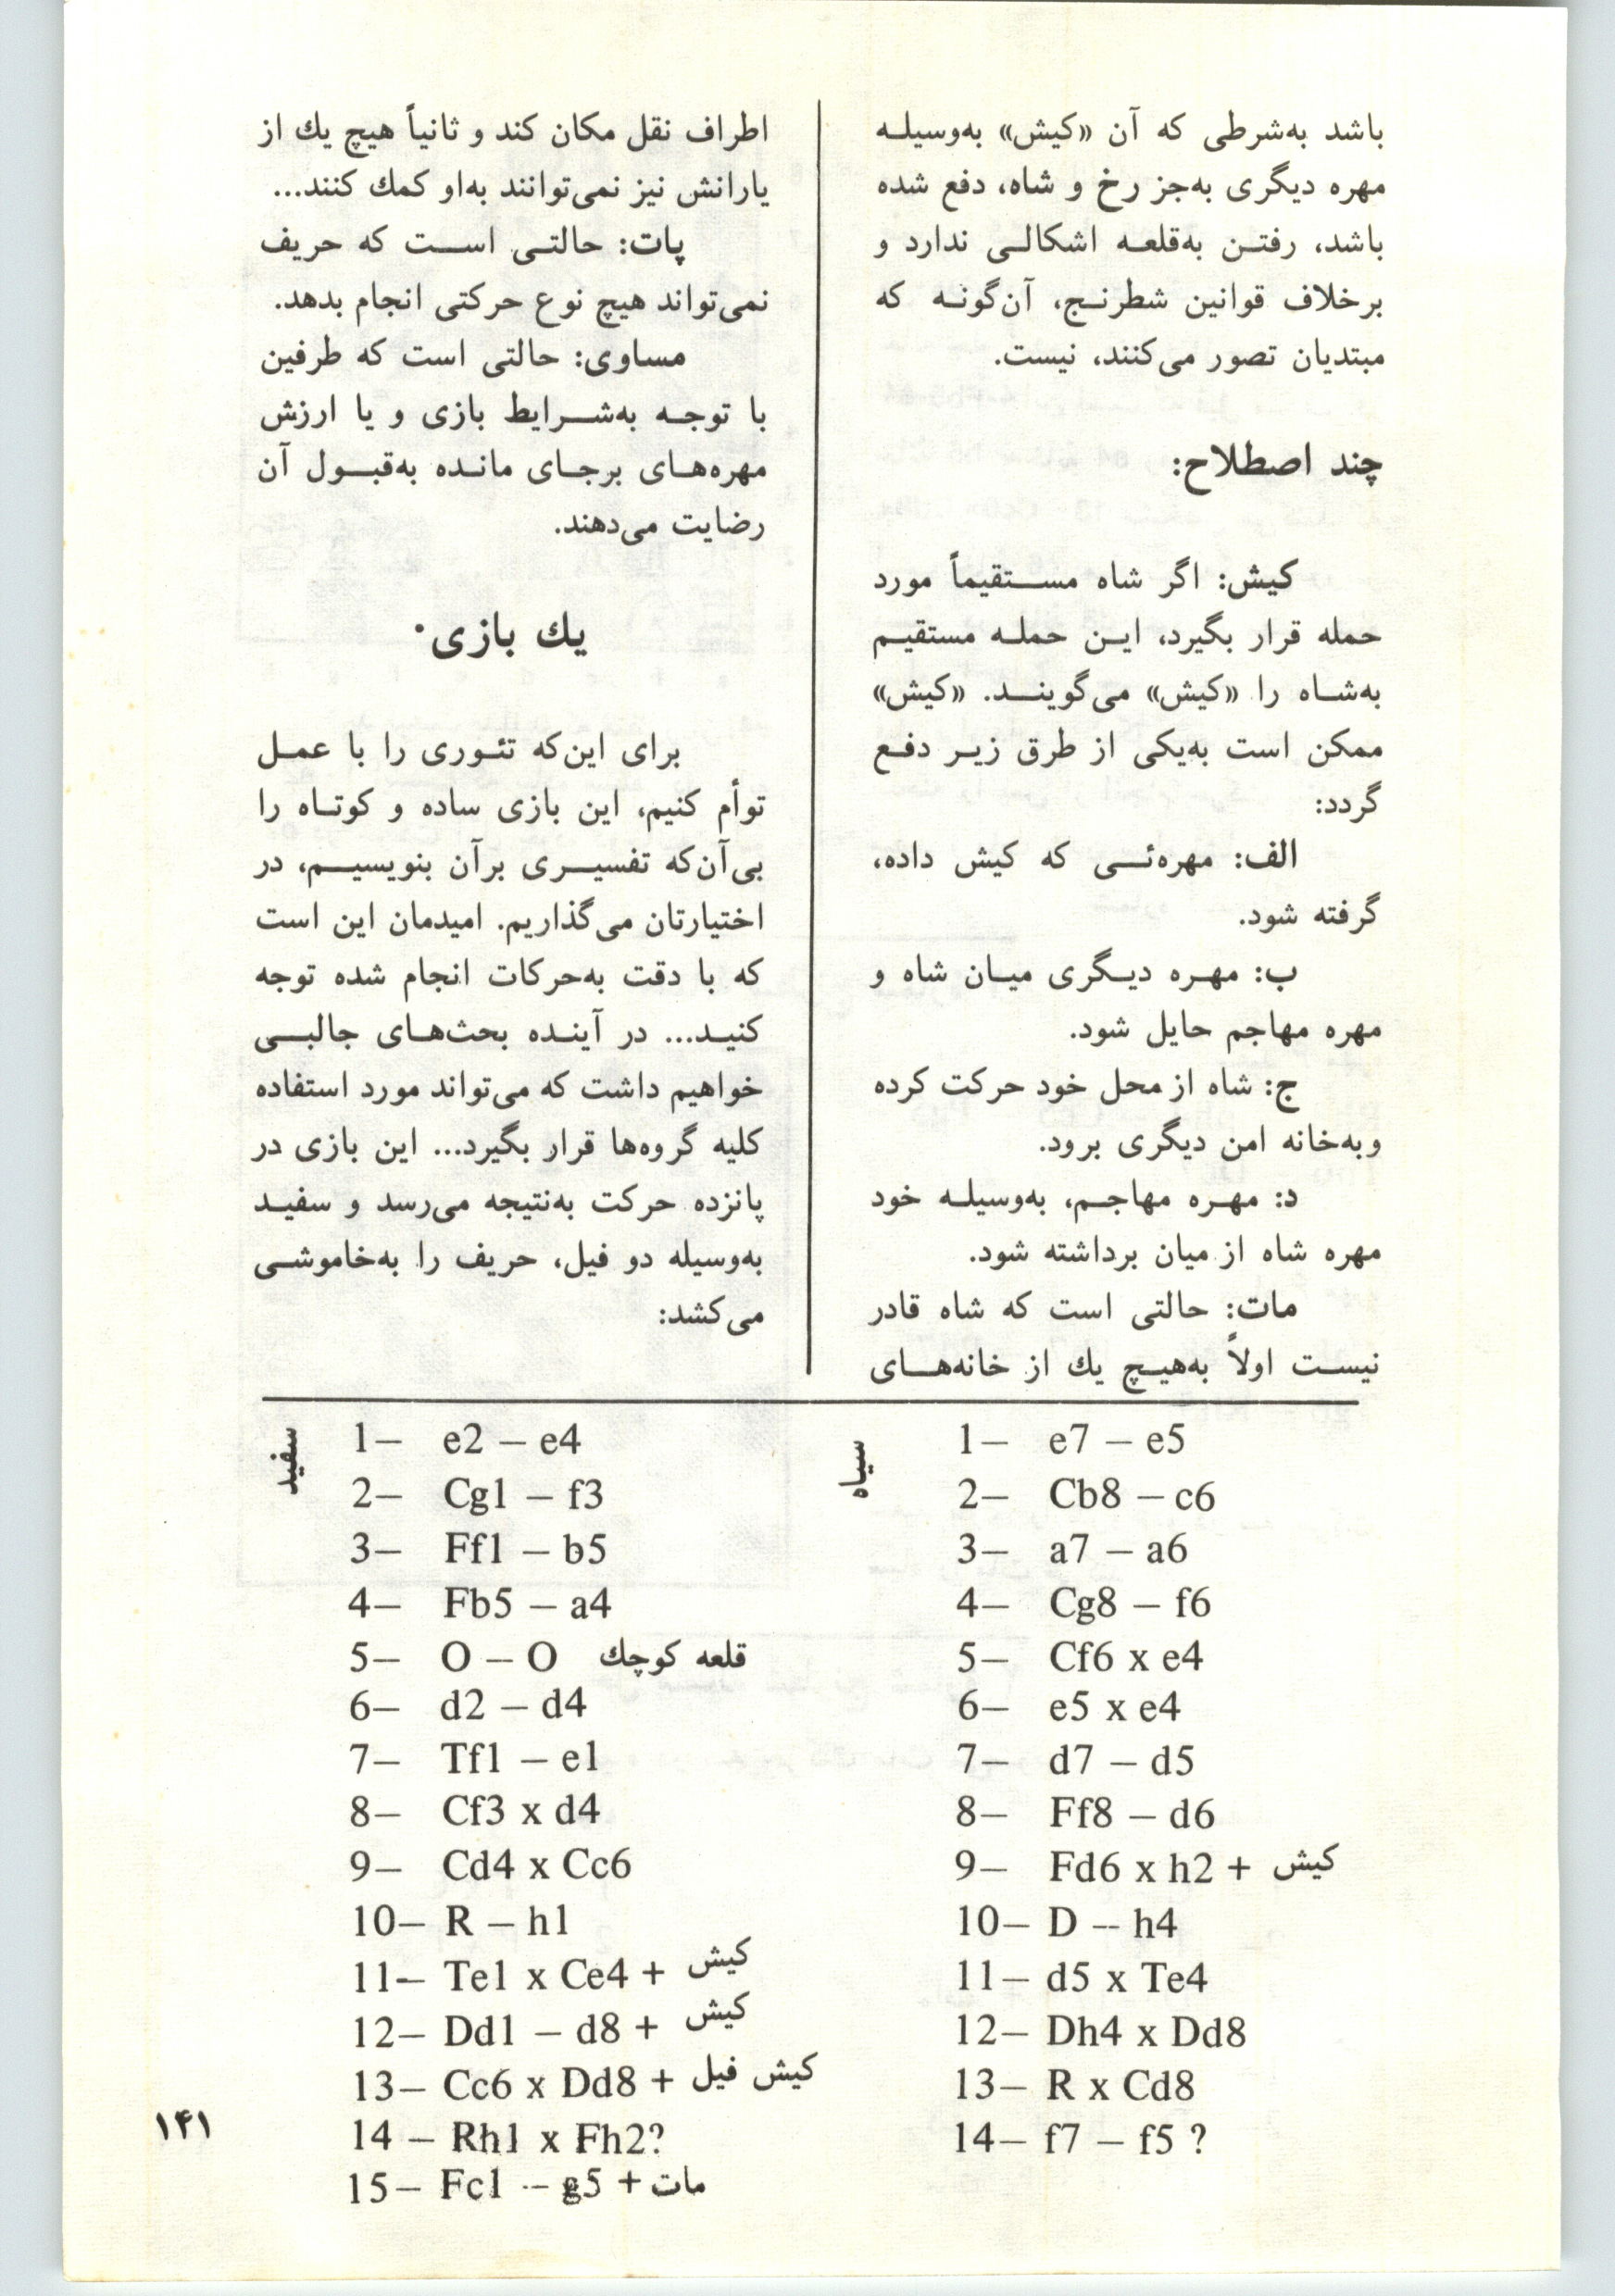 باشد به‌شرطی که آن «کیش» به‌وسیله
مهره دیگری به‌جز رخ و شاه، دفع شده
باشد، رفتن به‌قلعه اشکالی ندارد و
برخلاف قوانین شطرنج، آن‌گونه که
مبتدیان تصور می‌کنند، نیست.
چند اصطلاح:
کیش: اگر شاه مستقیماً مورد
حمله قرار بگیرد، این حمله مستقیم
به‌شاه را «کیش» می‌گویند. «کیش»
ممکن است به‌یکی از طرق زیر دفع
گردد:
الف: مهره‌ئی که کیش داده،
گرفته شود.
ب: مهره دیگری میان شاه و
مهره مهاجم حایل شود.
ج: شاه از محل خود حرکت کرده
وبه‌خانه امن دیگری برود.
د: مهره مهاجم، به‌وسیله خود
مهره شاه از میان برداشته شود.
مات: حالتی است که شاه قادر
نیست اولاً به‌هیچ یك از خانه‌های
اطراف نقل مکان کند و ثانیاً هیچ یك از
یارانش نیز نمی‌توانند به‌او کمك کنند...
پات: حالتی است که حریف
نمی‌تواند هیچ نوع حرکتی انجام بدهد.
مساوی: حالتی است که طرفین
با توجه به‌شرایط بازی و یا ارزش
مهره‌های برجای مانده به‌قبول آن
رضایت می‌دهند.
یك بازی•
برای این‌که تئوری را با عمل
توأم کنیم، این بازی ساده و کوتاه را
بی‌آن‌که تفسیری برآن بنویسیم، در
اختیارتان می‌گذاریم. امیدمان این است
که با دقت به‌حرکات انجام شده توجه
کنید... در آینده بحث‌های جالبی
خواهیم داشت که می‌تواند مورد استفاده
کلیه گروه‌ها قرار بگیرد... این بازی در
پانزده حرکت به‌نتیجه می‌رسد و سفید
به‌وسیله دو فیل، حریف را به‌خاموشی
می‌کشد:
سفید
1– e2 – e4
2– Cg1 – f3
3– Ff1 – b5
4– Fb5 – a4
5– O – O قلعه کوچك
6– d2 – d4
7– Tf1 – e1
8– Cf3 x d4
9– Cd4 x Cc6
10– R – h1
11– Te1 x Ce4 + کیش
12– Dd1 – d8 + کیش
13– Cc6 x Dd8 + کیش فیل
14 – Rh1 x Fh2?
15– Fc1 – g5 + مات
سیاه
1– e7 – e5
2– Cb8 – c6
3– a7 – a6
4– Cg8 – f6
5– Cf6 x e4
6– e5 x e4
7– d7 – d5
8– Ff8 – d6
9– Fd6 x h2 + کیش
10– D – h4
11– d5 x Te4
12– Dh4 x Dd8
13– R x Cd8
14– f7 – f5 ?
۱۴۱